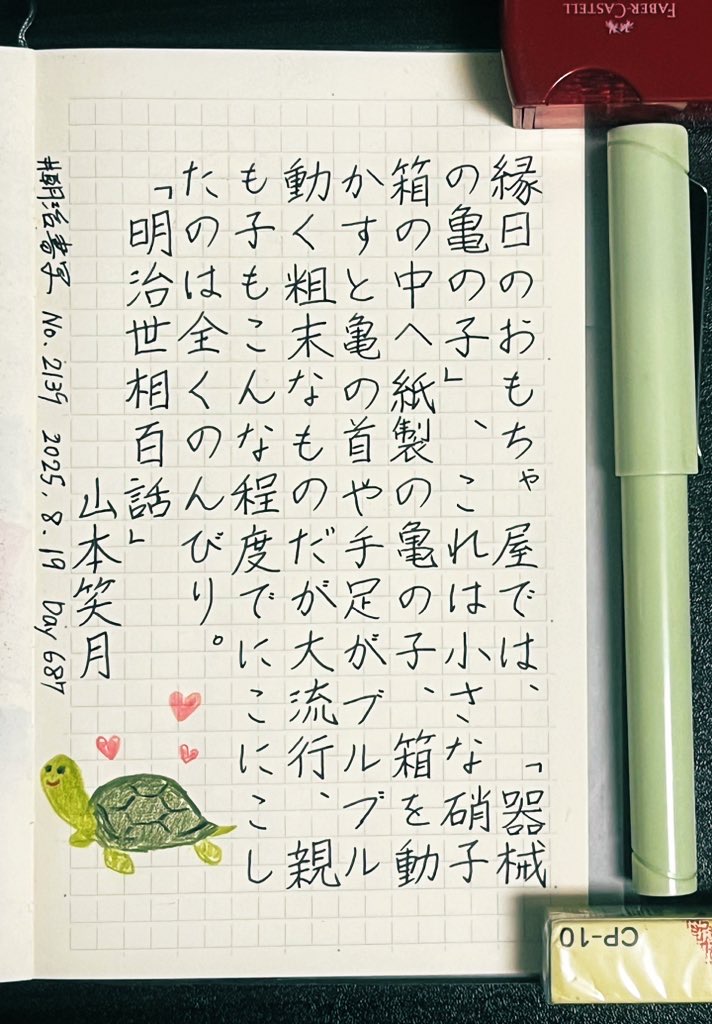 縁日のおもちゃ屋では、「器械
の亀の子」、これは小さな硝子
箱の中へ紙製の亀の子、箱を動
かすと亀の首や手足がブルブル
動く粗末なものだが大流行、親
も子もこんな程度でにこにこし
たのは全くのんびり。
「明治世相百話」
山本笑月
#朝活書写 No. 2139 2025. 8. 19 Day 687
FABER-CASTELL
CP-10